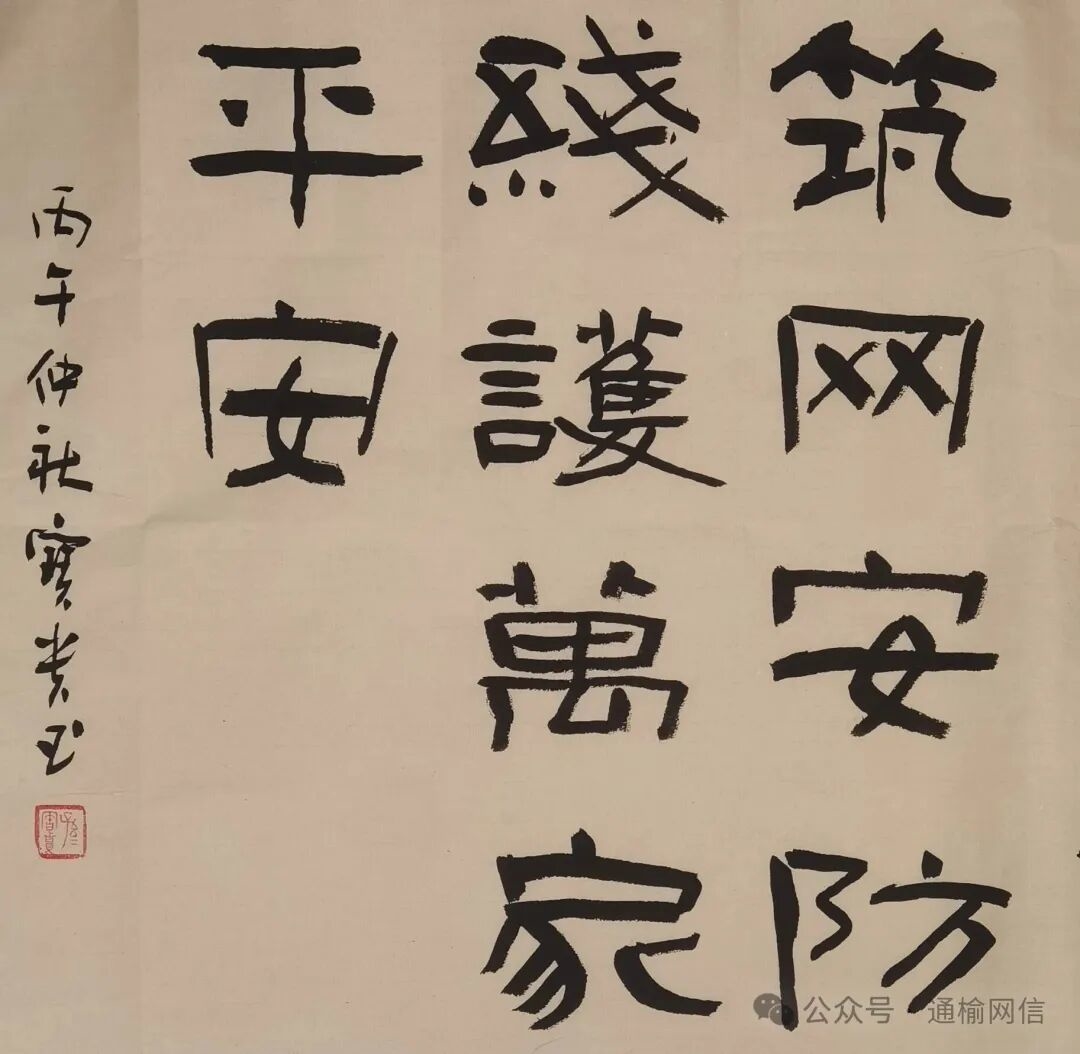 筑网安防
綫護萬家
平安
丙午仲秋寳贵书
公众号·通榆网信